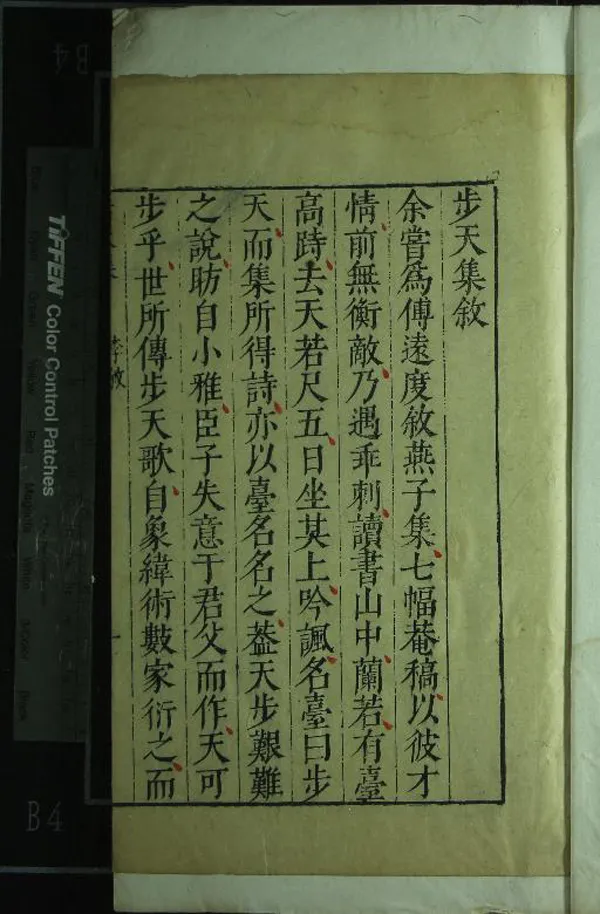 步天集敘
余嘗為傅遠度敘燕子集七幅菴稿以彼才
情前無衡敵乃遇乖刺讀書山中蘭若有臺
高跱去天若尺五日坐其上吟諷名臺曰步
天而集所得詩亦以臺名名之葢天步艱難
之說昉自小雅臣子失意于君父而作天可
步乎世所傳步天歌自象緯術數家衍之而
TIFFEN Color Control Patches
B4